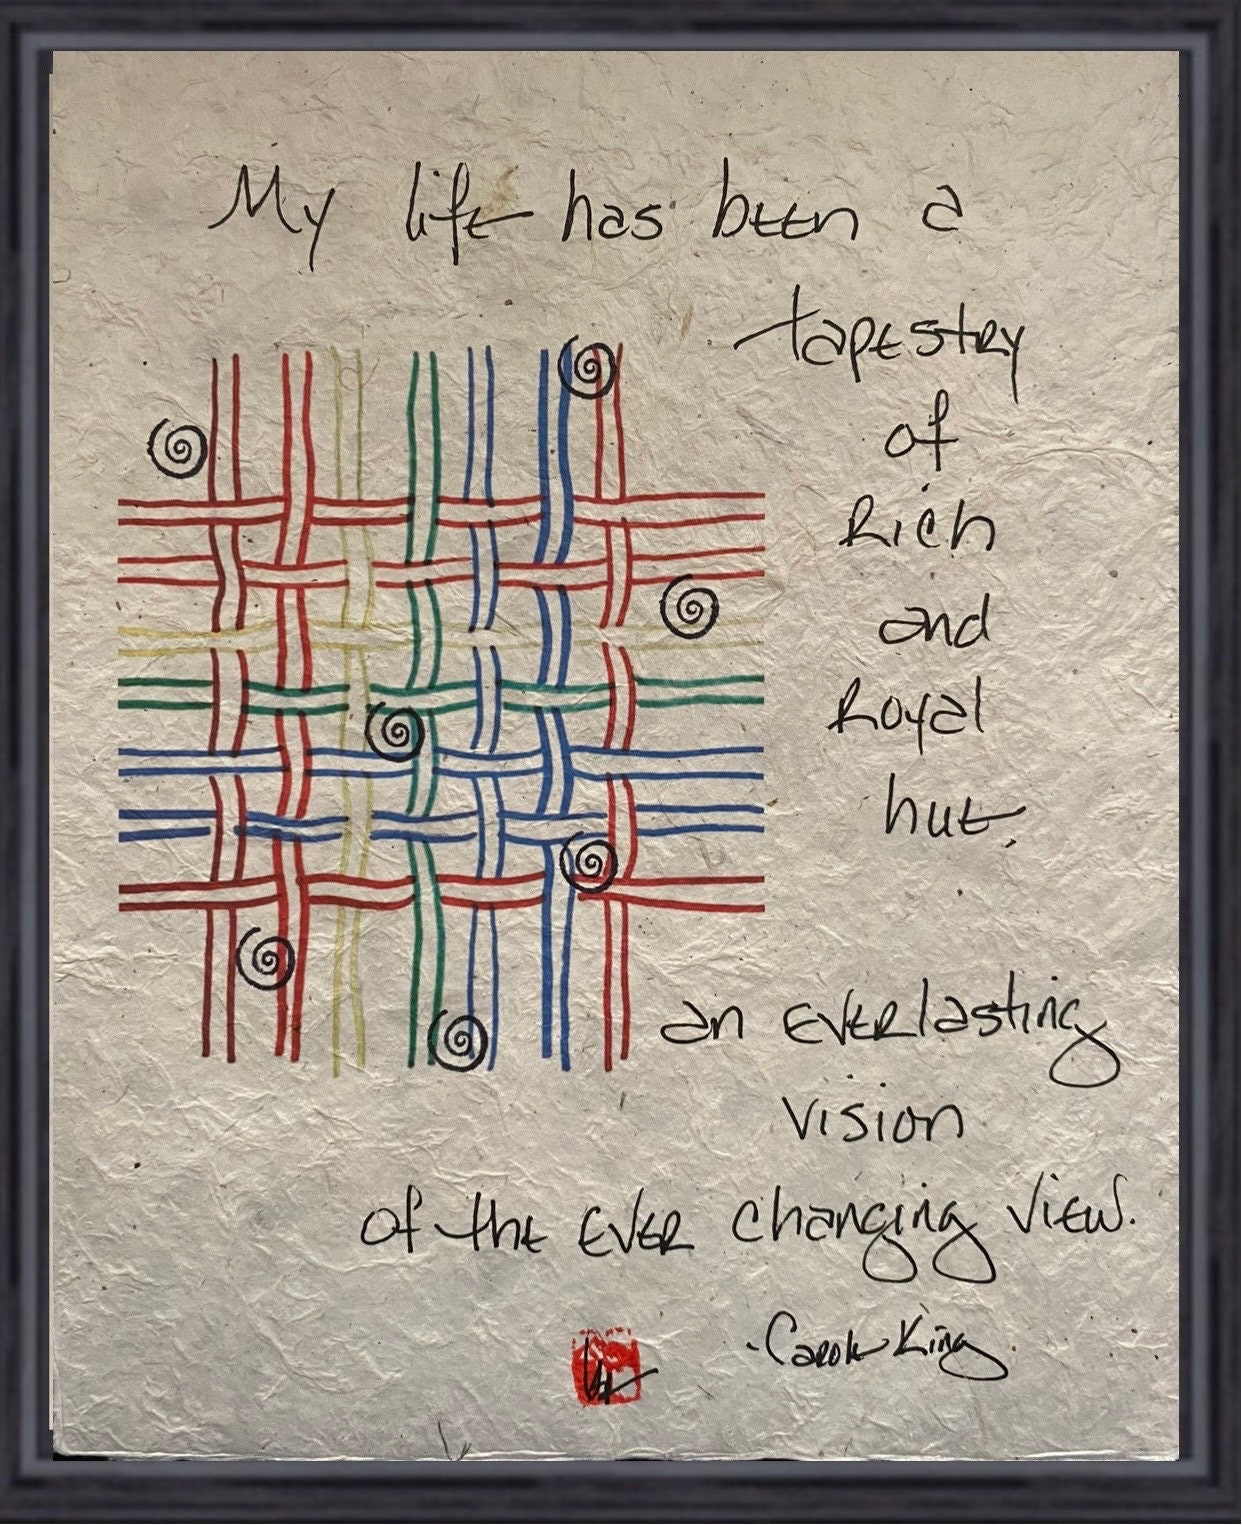 My life has been a
tapestry
of
Rich
and
Royal
hue.
an EVERlasting
vision
of the EVER changing view.
-Carole King